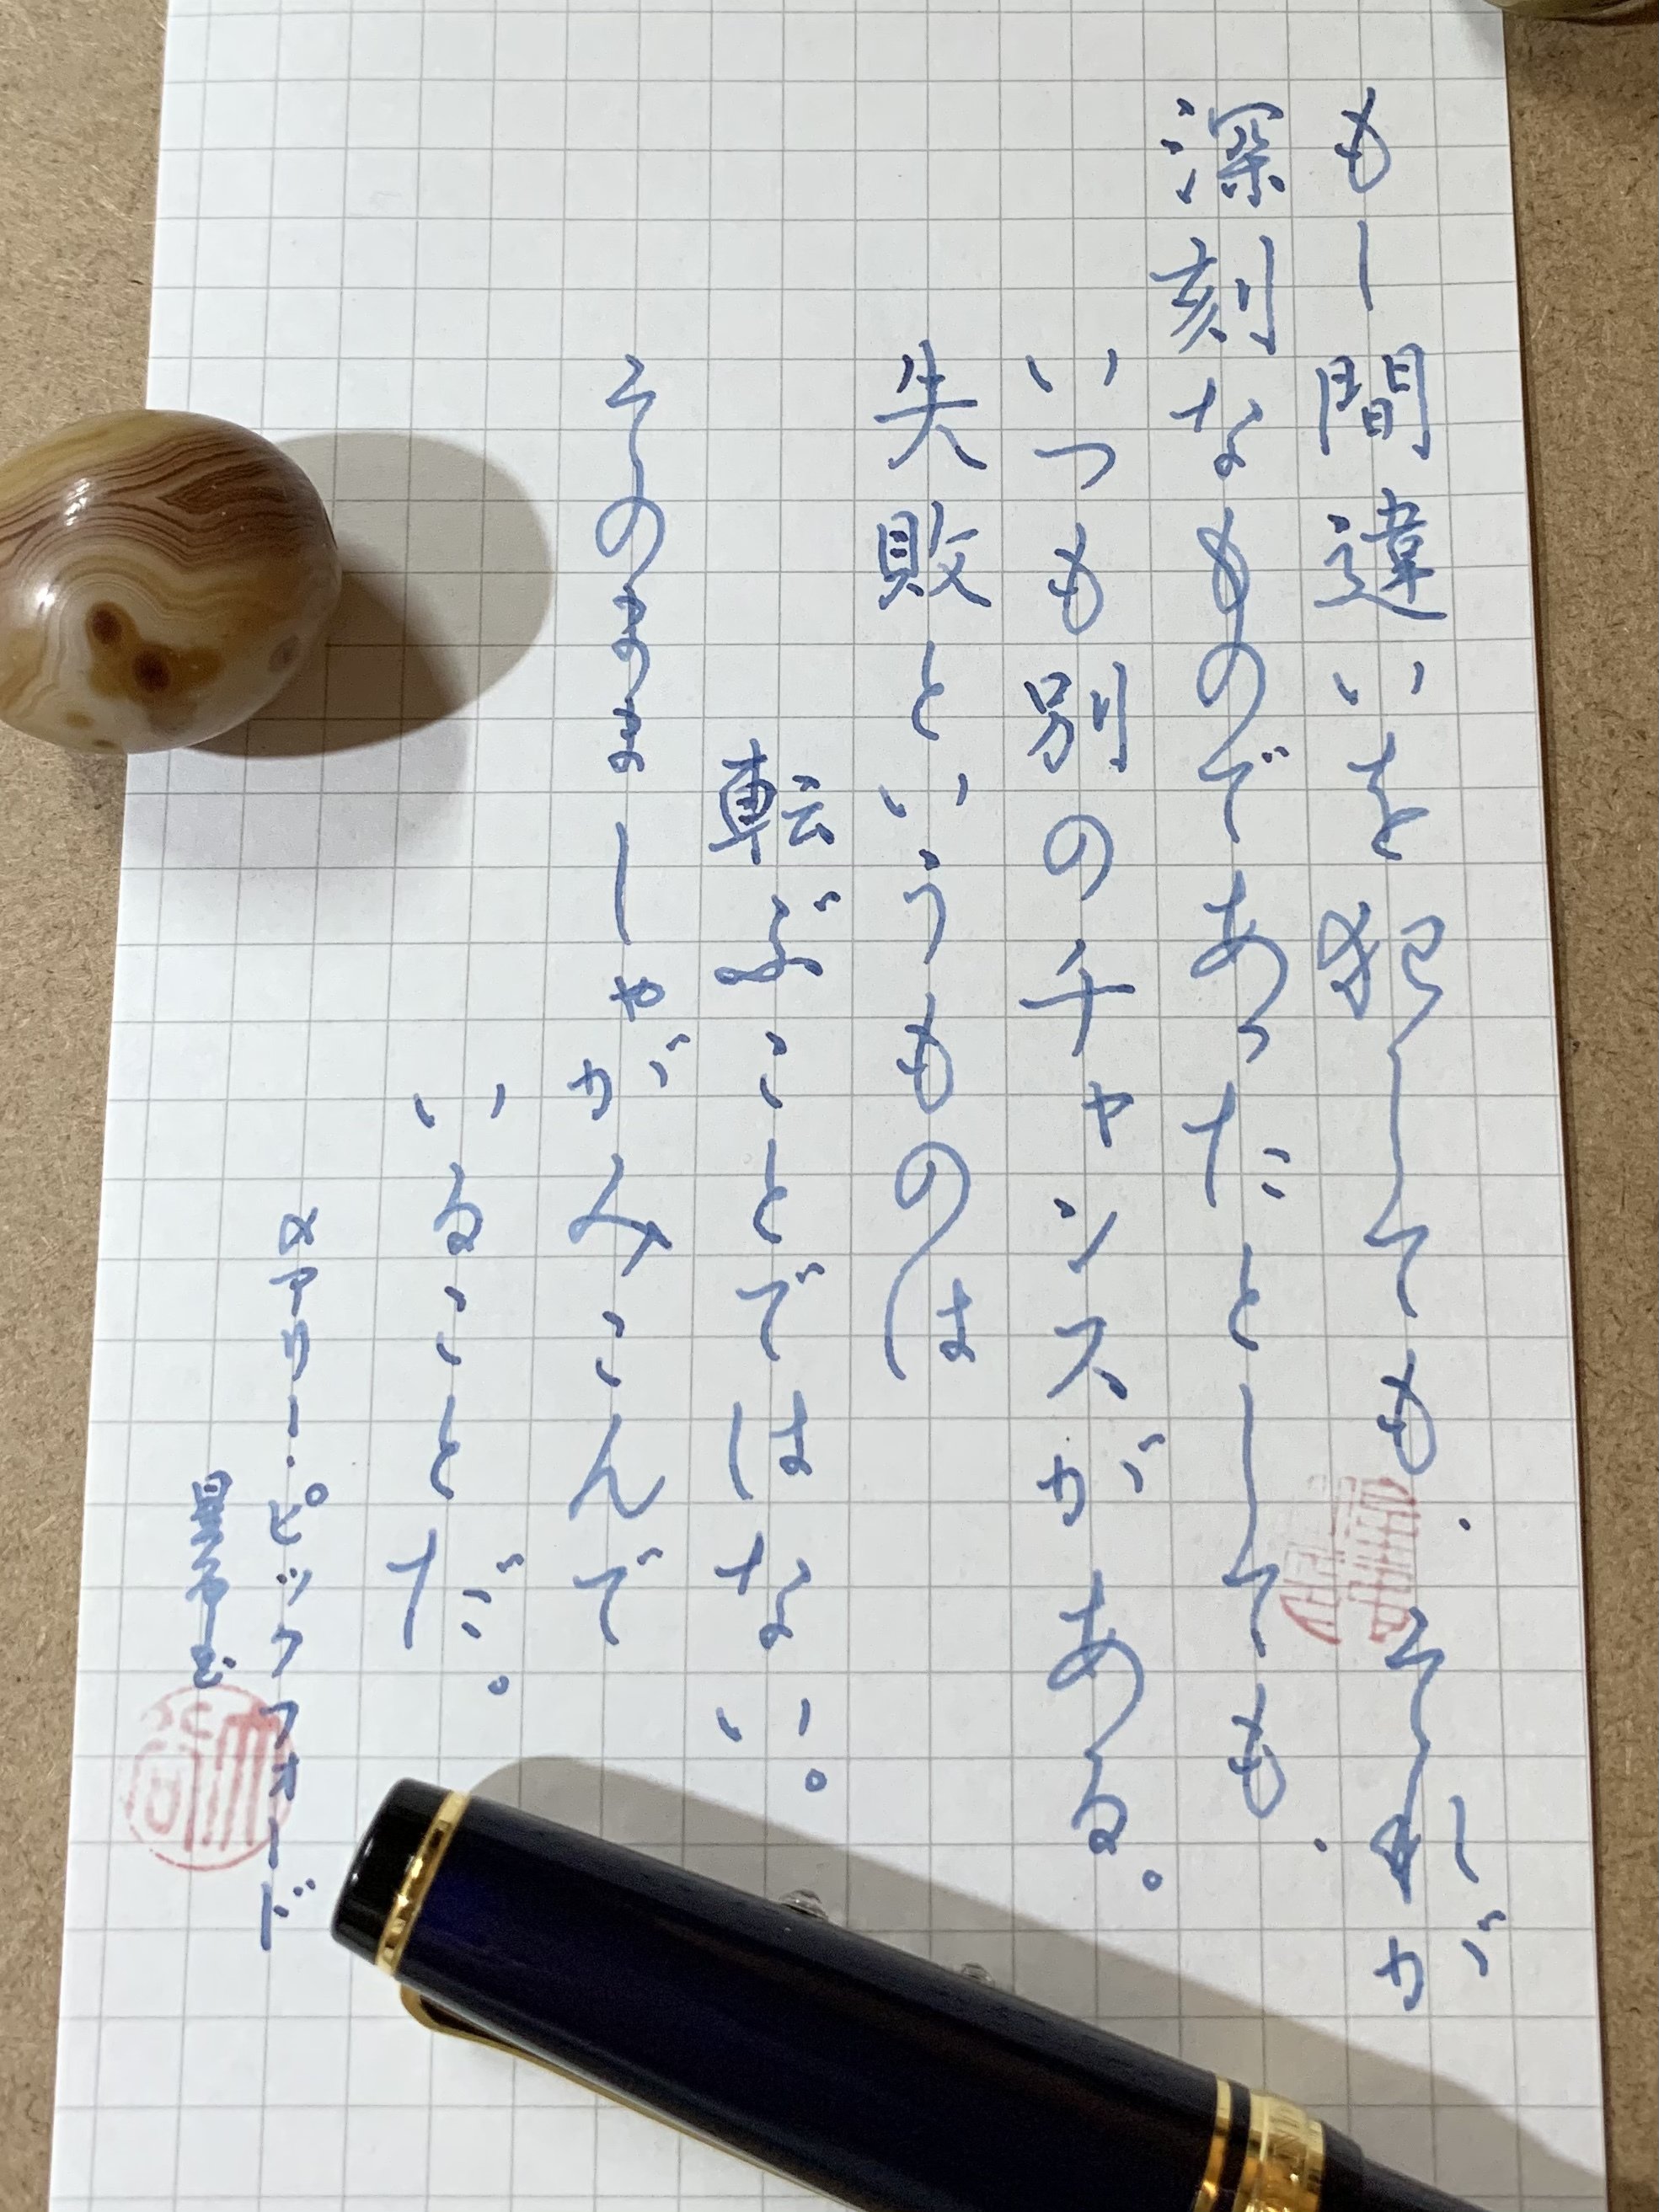 もし間違いを犯しても、それが
深刻なものであったとしても、
いつも別のチャンスがある。
失敗というものは
転ぶことではない。
そのまましゃがみこんで
いることだ。
メアリー・ピックフォード